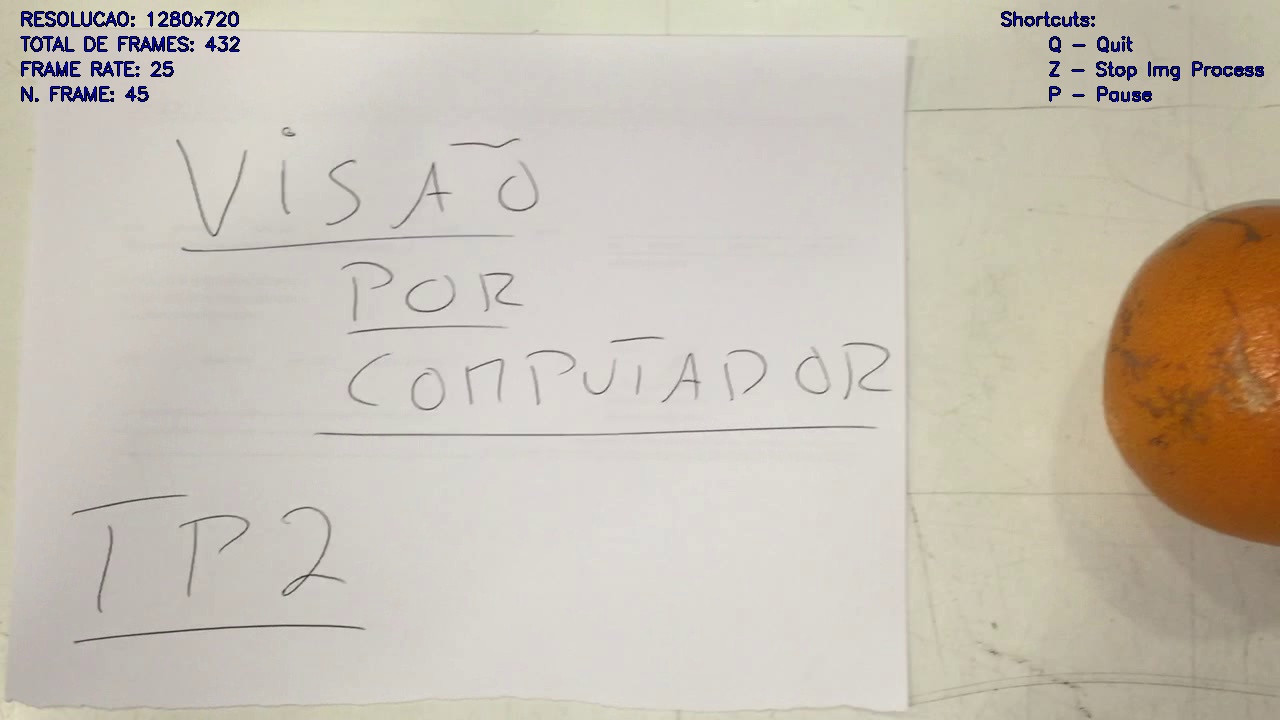 RESOLUCAO: 1280x720
TOTAL DE FRAMES: 432
FRAME RATE: 25
N. FRAME: 45
Shortcuts:
Q - Quit
Z - Stop Img Process
P - Pause
VISÃO
POR
COMPUTADOR
TP2